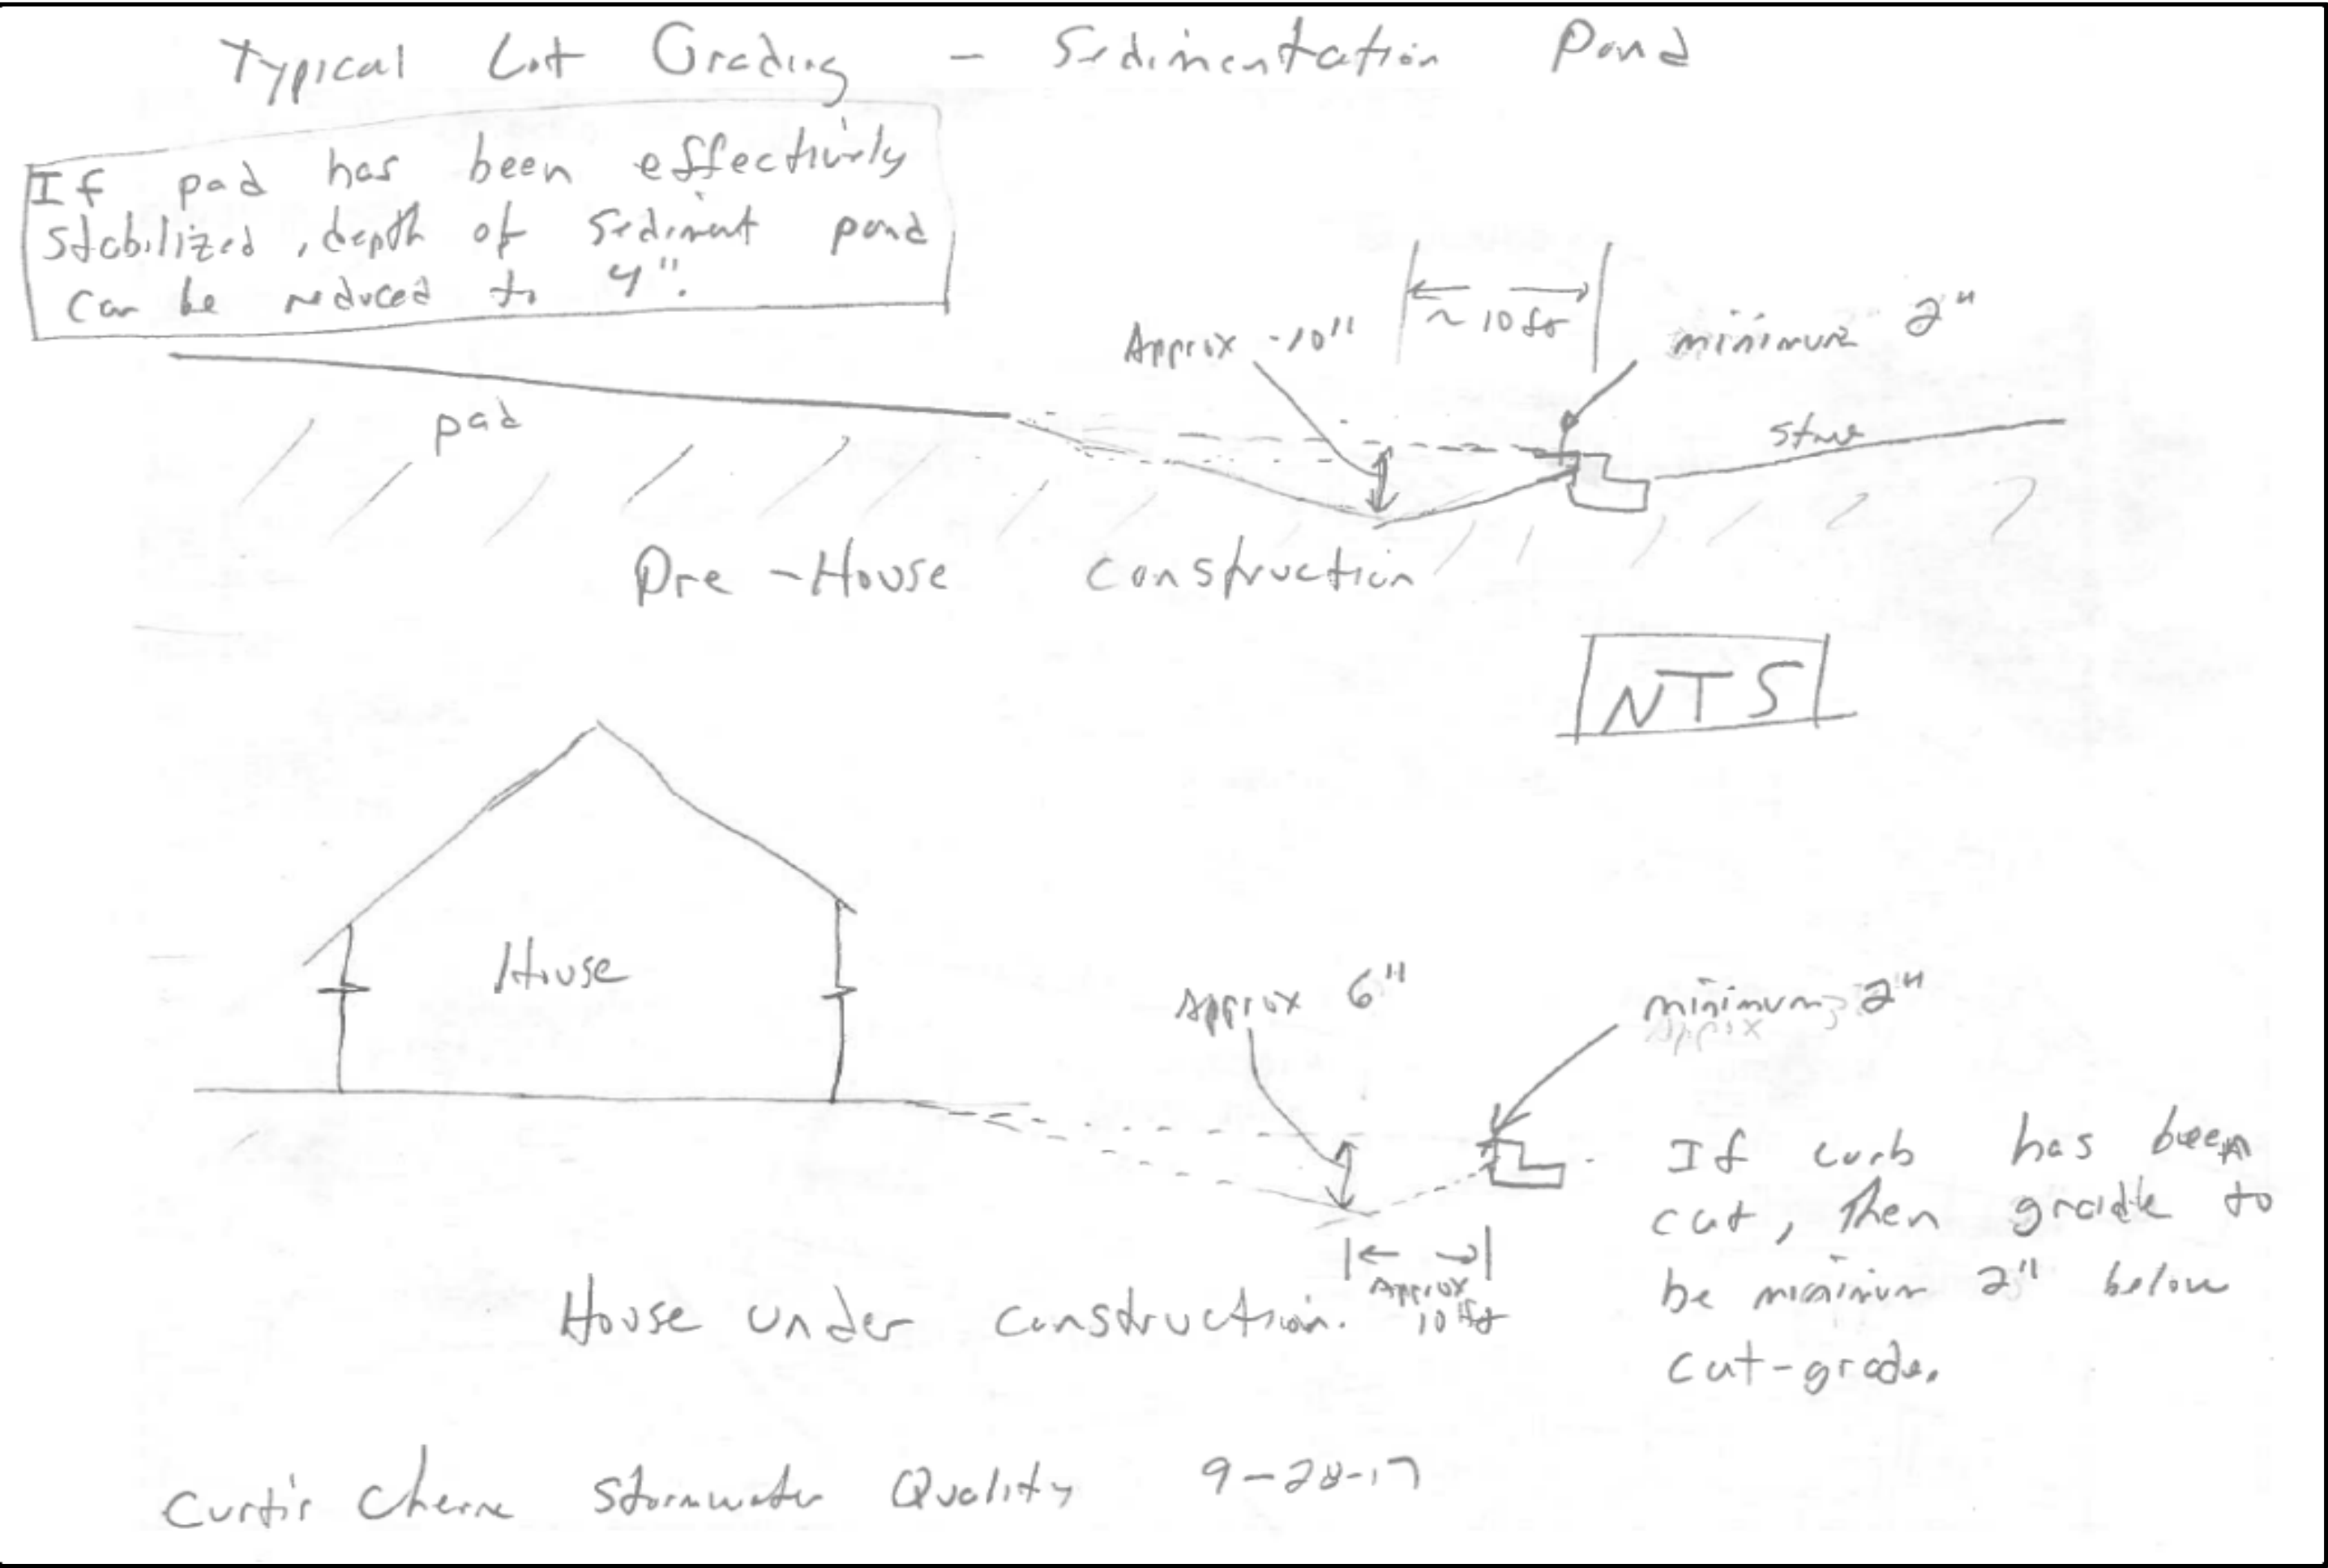 Typical Lot Grading - Sedimentation Pond
If pad has been effectively
stabilized, depth of sediment pond
can be reduced to 4".
Approx -10"
~ 10 ft
minimum 2"
pad
Pre-House Construction
NTS
House
Approx 6"
minimum 2"
Approx
If curb has been
cut, then grade to
be minimum 2" below
cut-grade.
Approx
10 ft
House under construction.
Curtis Cherne Stormwater Quality 9-28-17